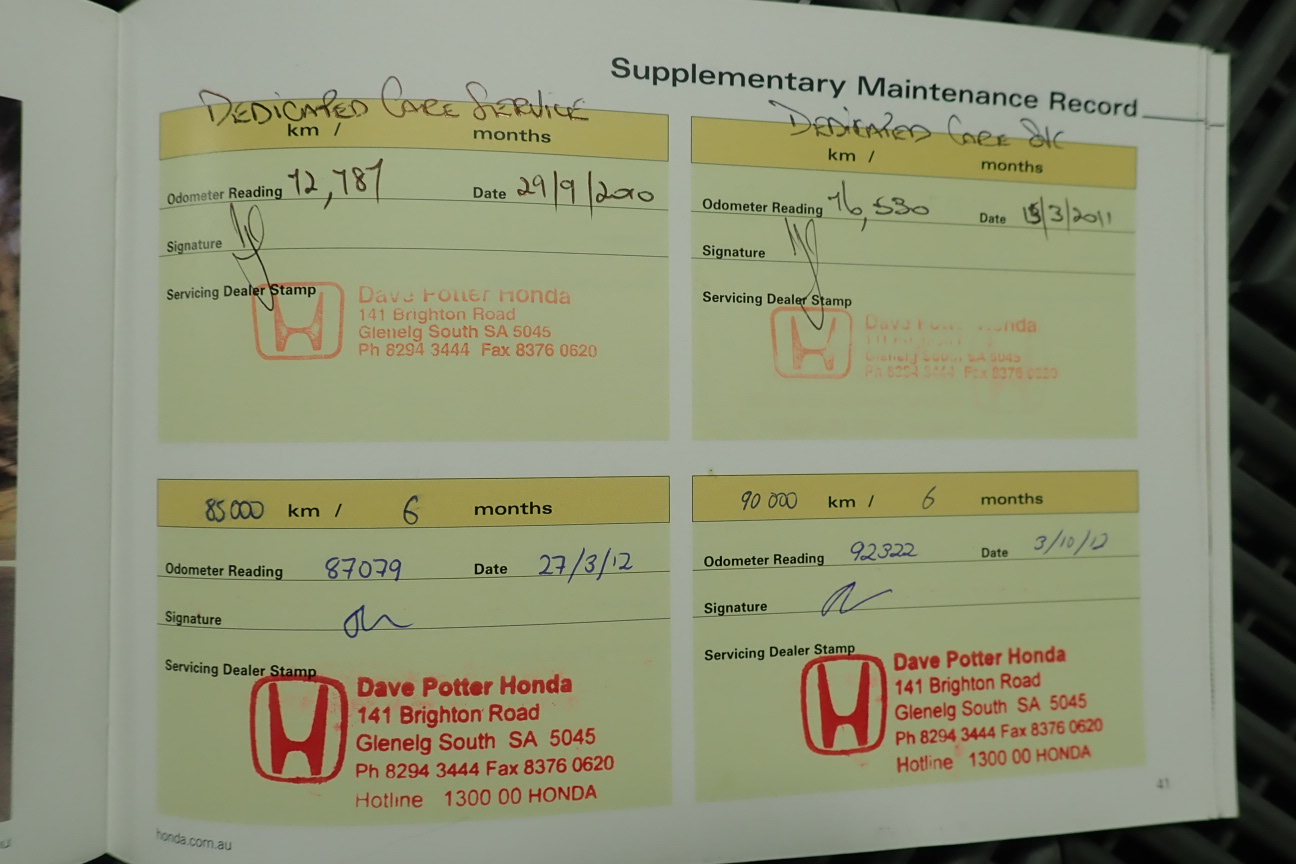 Supplementary Maintenance Record
DEDICATED CARE SERVICE
km / months
Odometer Reading 72,787 Date 29/9/2010
Signature
Servicing Dealer Stamp
Dave Potter Honda
141 Brighton Road
Glenelg South SA 5045
Ph 8294 3444 Fax 8376 0620
DEDICATED CARE
km / months
Odometer Reading 76,530 Date /3/2011
Signature
Servicing Dealer Stamp
Dave Potter Honda
Glenelg South SA 5045
Ph 8294 3444 Fax 8376 0620
85000 km / 6 months
Odometer Reading 87079 Date 27/3/12
Signature
Servicing Dealer Stamp
Dave Potter Honda
141 Brighton Road
Glenelg South SA 5045
Ph 8294 3444 Fax 8376 0620
Hotline 1300 00 HONDA
90 000 km / 6 months
Odometer Reading 92322 Date 3/10/12
Signature
Servicing Dealer Stamp
Dave Potter Honda
141 Brighton Road
Glenelg South SA 5045
Ph 8294 3444 Fax 8376 0620
Hotline 1300 00 HONDA
41
honda.com.au